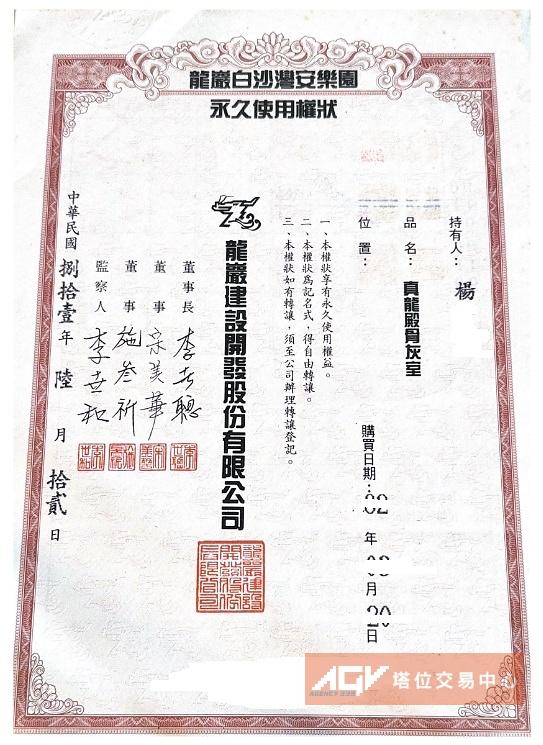 龍巖白沙灣安樂園
永久使用權狀
持有人：楊
品名：真龍殿骨灰室
位置：
購買日期：82年03月20日
一、本權狀享有永久使用權益。
二、本權狀為記名式，得自由轉讓。
三、本權狀如有轉讓，須至公司辦理轉讓登記。
龍巖建設開發股份有限公司
董事長 李世聰
董事 宗美華
董事 施叁祈
監察人 李世和
中華民國捌拾壹年陸月拾貳日
AGV 塔位交易中心